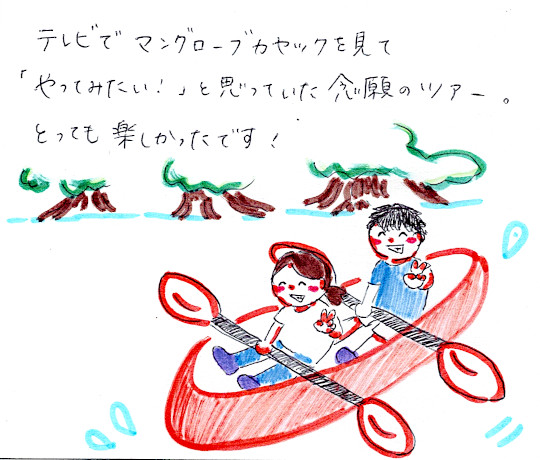 テレビで マングローブカヤックを見て
「やってみたい！」と思っていた念願のツアー。
とっても楽しかったです！